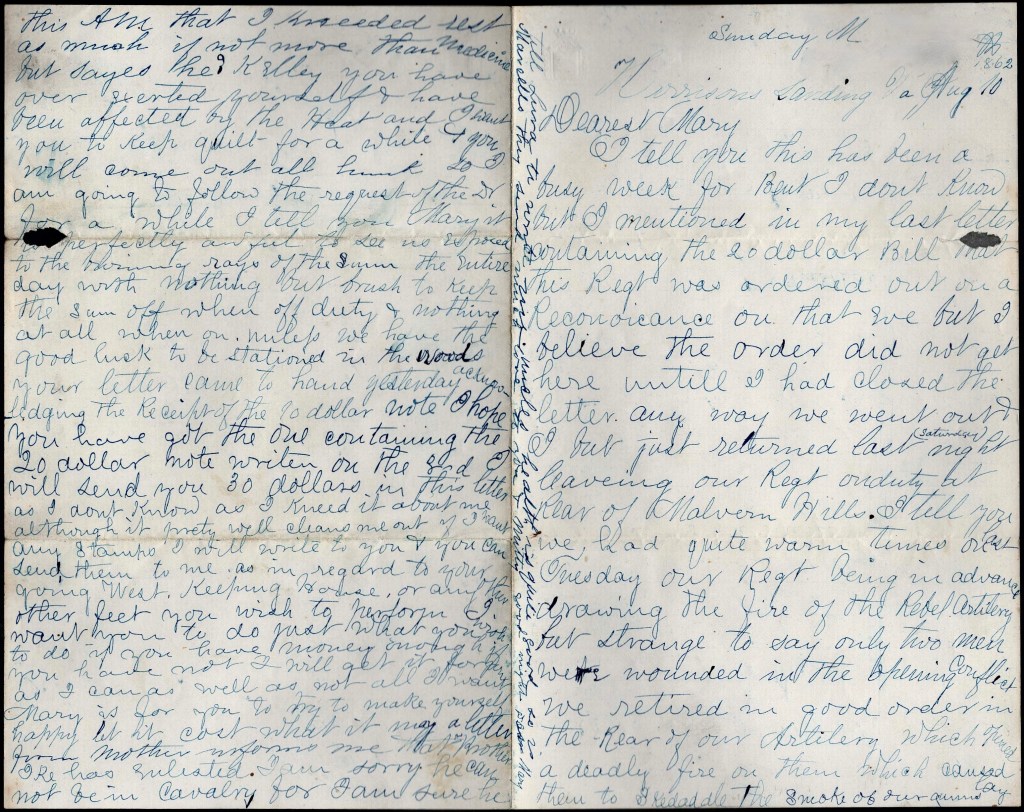 Sunday M
1862
Harrisons Landing Va Aug 10
Dearest Mary
I tell you this has been a
busy week for Bent I dont Know
but I mentioned in my last letter
containing the 20 dollar Bill that
this Regt was ordered out on a
Reconoicance on that Eve but I
believe the order did not get
here untill I had closed the
letter. any way we went out &
I but just returned last (Saturday) night
leaveing our Regt onduty at
Rear of Malvern Hills. I tell you
we had quite warm times on
Tuesday our Regt being in advance
drawing the fire of the Rebel Artilery
but strange to say only two men
were wounded in the opening Conflict
we retired in good order in
the Rear of our Artilery which
a deadly fire on them which caused
them to Skedaddle the Smoke of our guns
this A.M. that I kneeded rest
as much if not more than Medicine
but sayes he Kelley you have
over exerted yourself & have
been affected by the Heat and I want
you to Keep quiet for a while & you
will come out all hunk so I
am going to follow the request of the Dr
for a while I tell you Mary it
is perfectly awful to see us exposed
to the burning rays of the Sunn the entire
day with nothing but brush to Keep
the Sum off when off duty & nothing
at all when on. unless we have the
good lusk to be stationed in the woods
your letter came to hand yesterday acknow-
ledging the Receipt of the 10 dollar note I hope
you have got the one containing the
20 dollar note writen on the 2nd I
will send you 30 dollars in this letter
as I dont Know as I Kneed it about me
although it prety well cleans me out if I want
any Stamps I will write to you & you can
send them to me. as in regard to your
going West, Keeping House, or any
other feet you wish to perform I
want you to do just what you
to do if you have money enough if
you have not I will get it for you
as I can as well as not all I want
Mary is for you to try to make yourself
happy let it cost what it may a letter
from mother informs me that Brother
Ike has Enlisted. I am sorry he can
not be in Cavalry for I am sure he